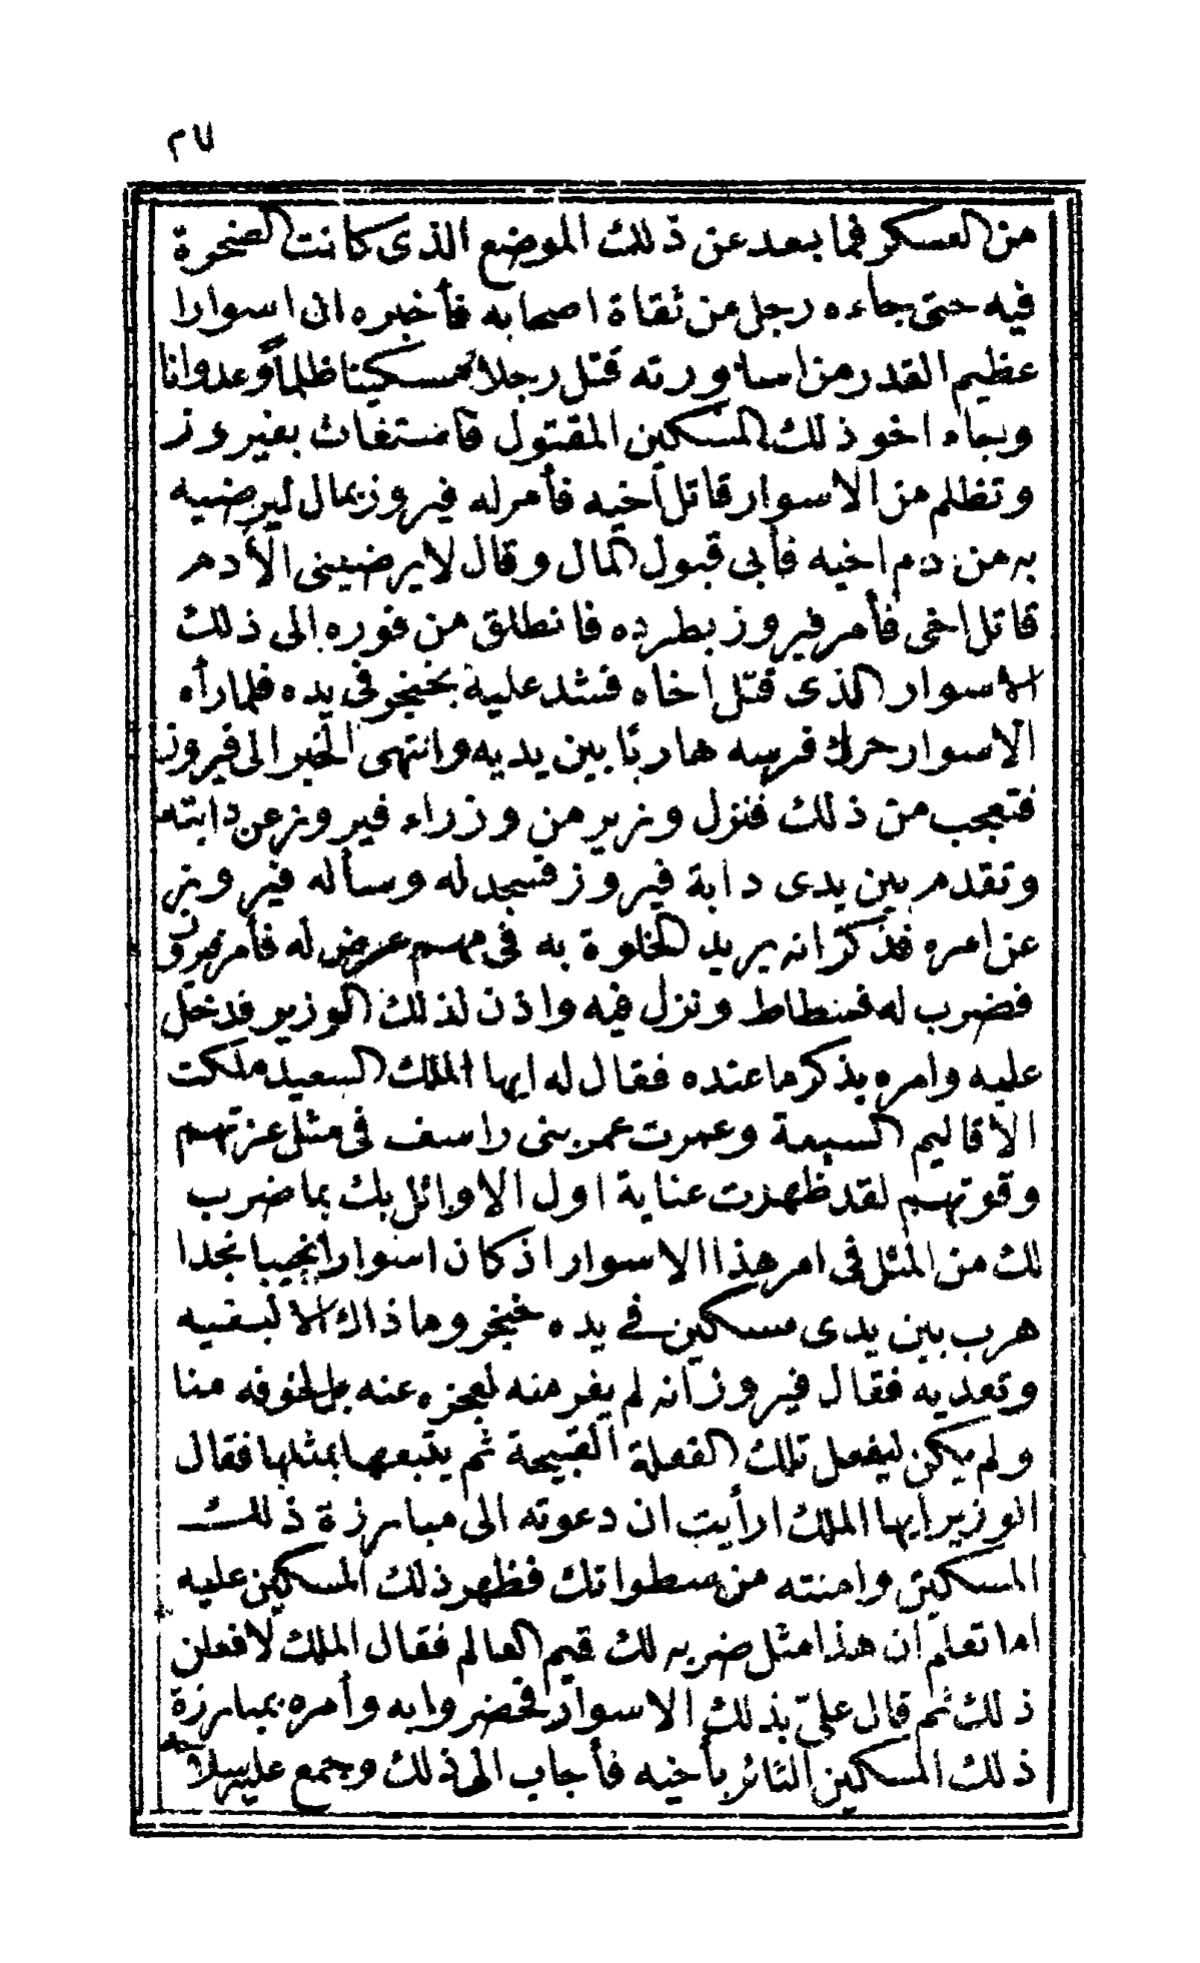 ٢٧
من العسكر فما بعد عن ذلك الموضع الذى كانت الصخرة
فيه حتى جاءه رجل من ثقاة اصحابه فأخبره ان اسوارا
عظيم القدر من اساورته قتل رجلا مسكينا ظلماً وعدوانا
وجاء اخو ذلك المسكين المقتول فاستغاث بفيروز
وتظلم من الاسوار قاتل أخيه فأمر له فيروز بمال ليرضيه
به من دم اخيه فأبى قبول المال وقال لا يرضينى الا دم
قاتل اخى فأمر فيروز بطرده فانطلق من فوره الى ذلك
الاسوار الذى قتل اخاه فشد عليه بخنجر فى يده فلما رأه
الاسوار حرك فرسه هاربًا بين يديه وانتهى الخبر الى فيروز
فتعجب من ذلك فنزل وزير من وزراء فيروز عن دابته
وتقدم بين يدى دابة فيروز فسجد له وسأله فيروز
عن امره فذكر انه يريد الخلوة به فى مهم عرض له فأمر فيروز
فضرب له فسطاط ونزل فيه واذن لذلك الوزير فدخل
عليه وامره بذكر ما عنده فقال له ايها الملك السعيد ملكت
الاقاليم السبعة وعمرت عمر بنى راسف فى مثل عزتهم
وقوتهم لقد ظهرت عناية اول الاوائل بك بما ضرب
لك من المثل فى امر هذا الاسوار اذ كان اسوارا نجيبا نجدا
هرب بين يدى مسكين فے يده خنجر وما ذاك الا لبغيه
وتعديه فقال فيروز انه لم يفر منه لعجزه عنه بل لخوفه منا
ولم يكن ليفعل تلك الفعلة القبيحة ثم يتبعها بمثلها فقال
الوزير ايها الملك ارأيت ان دعوته الى مبارزة ذلك
المسكين وامنته من سطواتك فظهر ذلك المسكين عليه
اما تعلم ان هذا مثل ضربه لك قيم العالم فقال الملك لافعلن
ذلك ثم قال علىّ بذلك الاسوار فحضروا به وأمره بمبارزة
ذلك المسكين الثائر بأخيه فأجاب الى ذلك وجمع عليه سلاحه